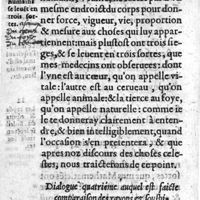 humaine
se leuẽt en
trois sor-
tes.
mesme endroit & du corps pour don-
ner force, vigueur, vie, proportion
& mesure aux choses qui luy appar-
tiennent: mais plustost ont trois cho-
ses, & se leuent en trois sortes, que
mes-medecins ont obseruees: dont
l'vne est au cœur, qu'on appelle vi-
tale: l'autre est au cerueau, qu'on
appelle animale: & la tierce au foye,
qu'on appelle naturelle: comme ie
le te donneray clairement à enten-
dre, & bien intelligiblement, quand
l'occasion s'en presentera, & que
apres noz discours des choses cele-
stes, nous traicterons de ce point.
Dialogue quatriéme auquel est faicte
comparaison des rayons en souffri-